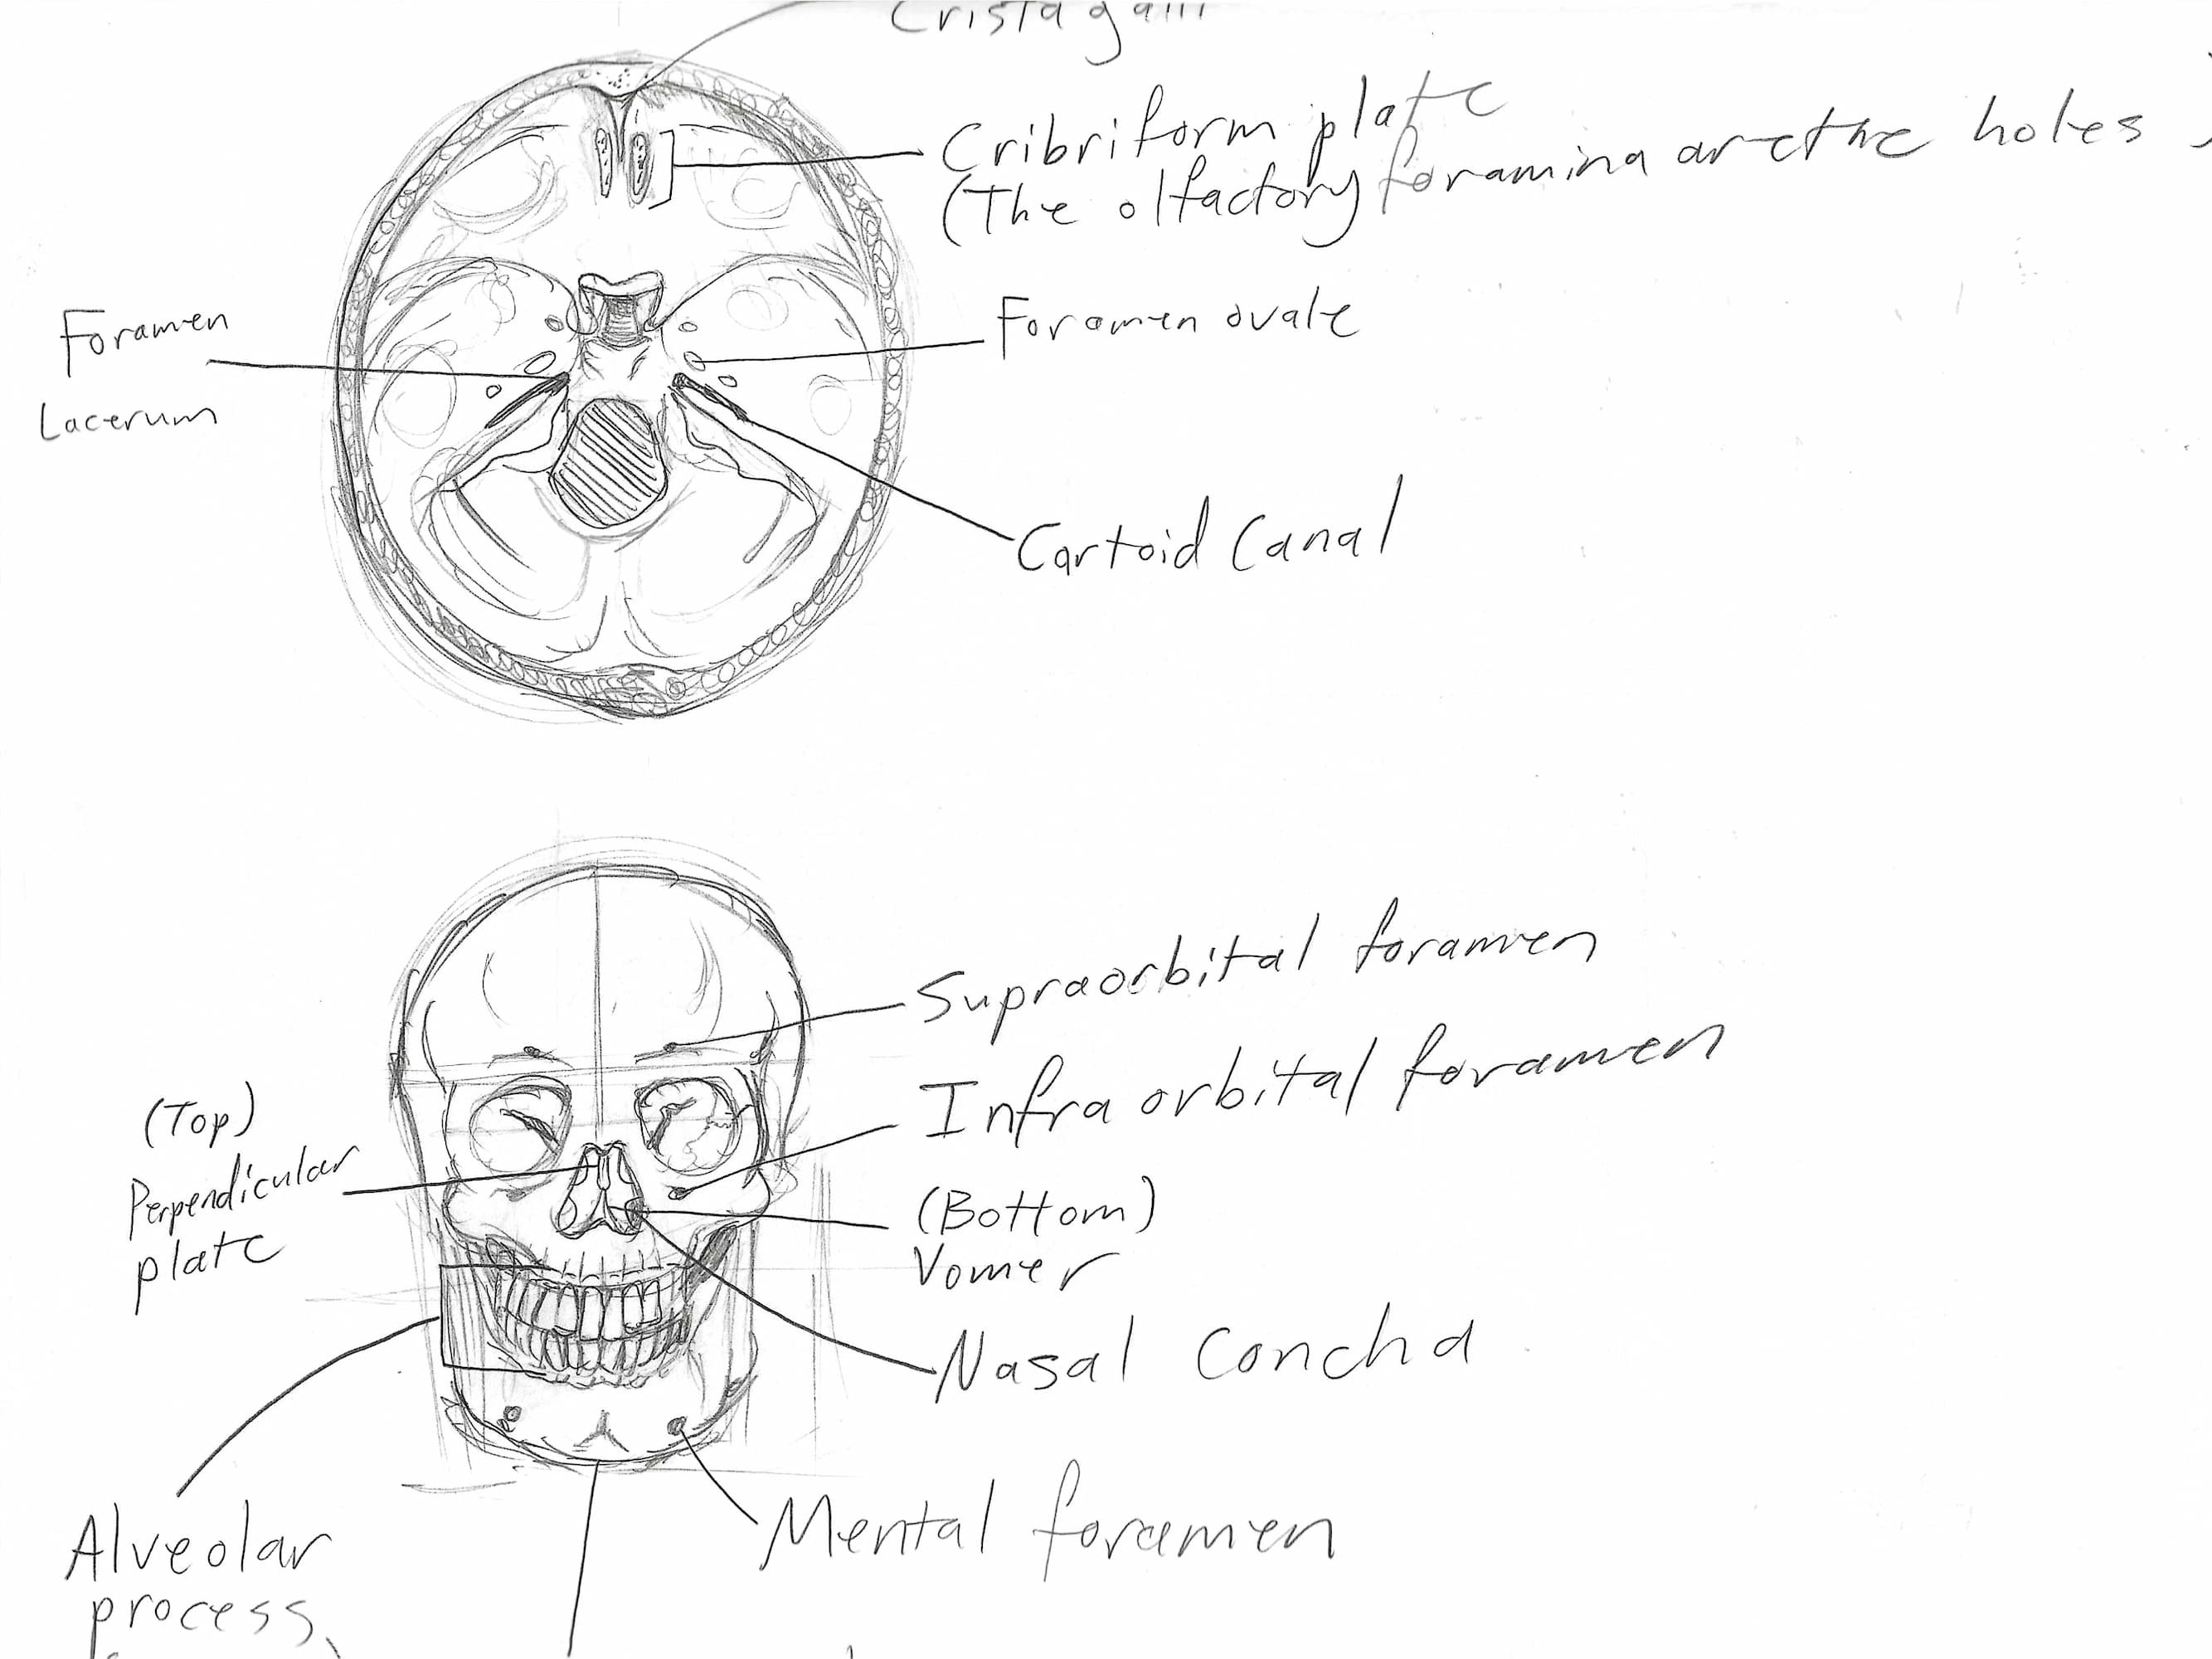 Crista galli
Cribriform plate
(The olfactory foramina are the holes)
Foramen
Lacerum
Foramen ovale
Cartoid Canal
Supraorbital foramen
Infraorbital foramen
(Top)
Perpendicular
plate
(Bottom)
Vomer
Nasal concha
Mental foramen
Alveolar
process